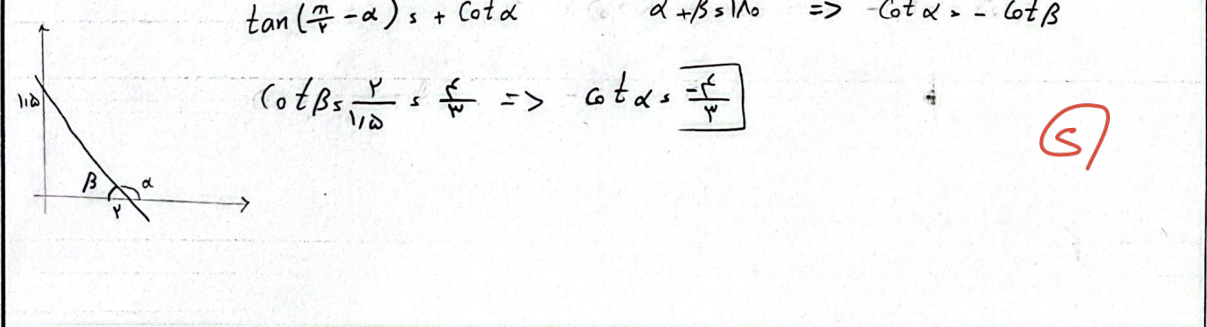 tan(π/۲ - α) = + Cot α    α + β = ۱۸۰ => Cot α = - Cot β
Cot β = ۲/۱٫۵ = ۴/۳ => Cot α = -۴/۳
۱٫۵
β α
۲